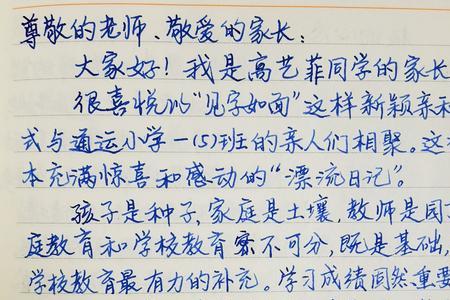 尊敬的老师、敬爱的家长：
大家好！我是高艺菲同学的家长
很喜悦以“见字如面”这样新颖亲和
式与通运小学一(5)班的亲人们相聚。这
本充满惊喜和感动的“漂流日记”。
孩子是种子，家庭是土壤，教师是园丁
庭教育和学校教育密不可分，既是基础，
学校教育最有力的补充。学习成绩固然重要